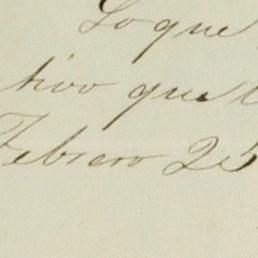 Lo que
tivo que
Febrero 25